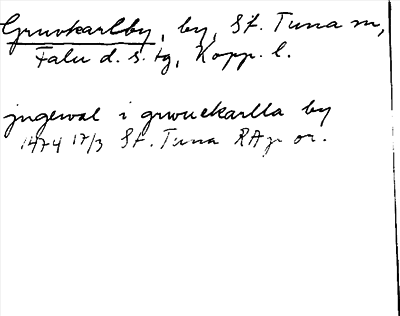 Gruvkarlby, by, St. Tuna sn,
Falu d. s. tg, Kopp. l.
jngewal i grwuekarlla by
1474 17/3 St. Tuna RAp or.